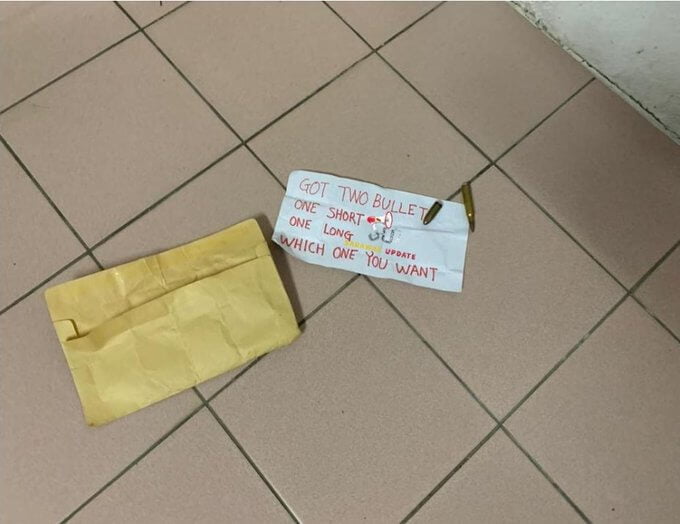 GOT TWO BULLET
ONE SHORT
ONE LONG
SU
SARAWAK UPDATE
WHICH ONE YOU WANT